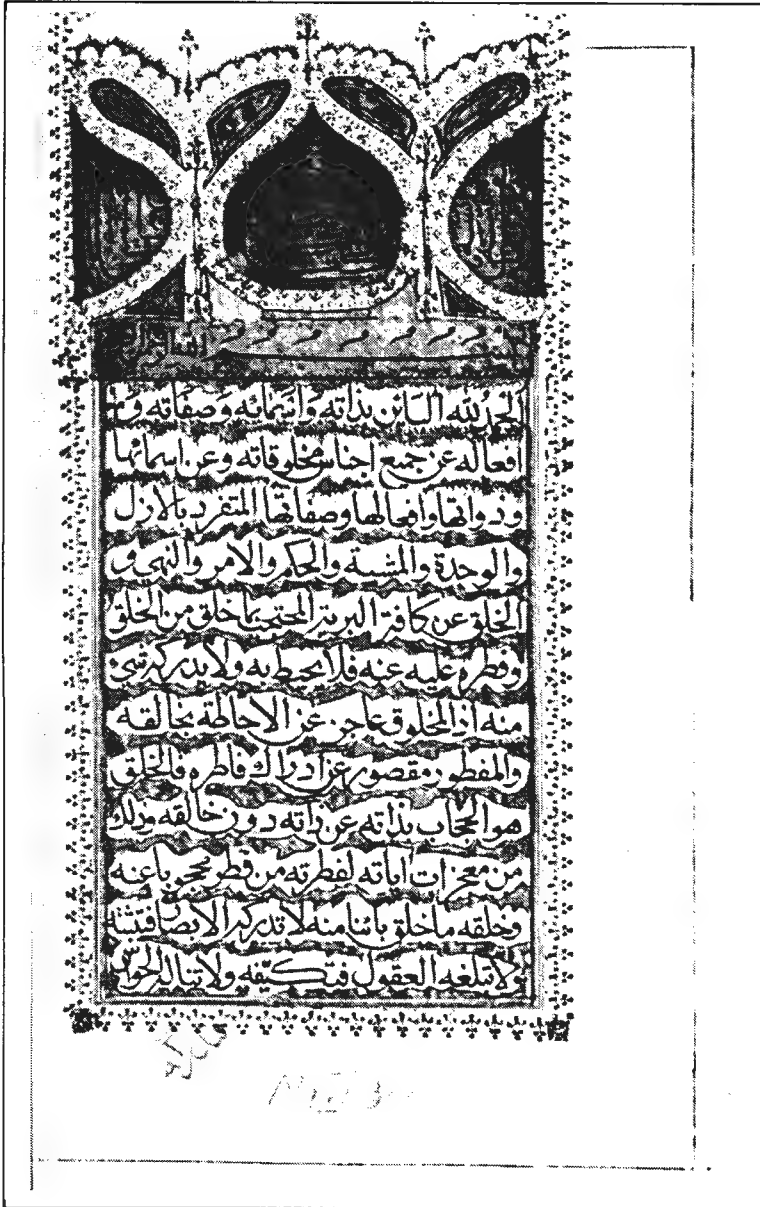 الحمد لله البائن بذاته واسمائه وصفاته و
افعاله عن جميع اجناس مخلوقاته وعن اسمائها
وذواتها وافعالها وصفاتها المتفرد بالازل
والوحدة والمشية والحكم والامر والنهى و
الخلق عن كافة البرية المحتجب بما خلق من الخلق
وفطره عليه عنه فلا يحيط به ولا يدركه شئ
منه اذ المخلوق عاجز عن الاحاطة بخالقه
والمفطور مقصور عن ادراك فاطره فالخلق
هو الحجاب بذاته عن ذاته دون خالقه وذلك
من معجزات اياته لفطرته من فطر محجوبا عنه
وخلقه ما خلق بائنا منه لا تدركه الابصار فتثبته
ولا تبلغه العقول فتكيفه ولا تناله الحواس